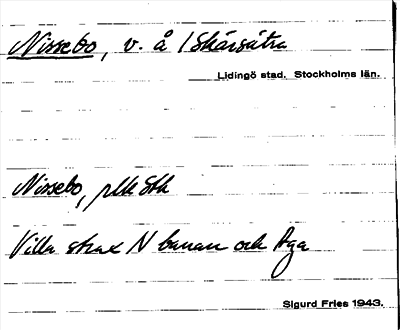 Nissebo, v. å / Skärsätra
Lidingö stad. Stockholms län.
Nissebo,
Villa strax N banan och Aga
Sigurd Fries 1943.